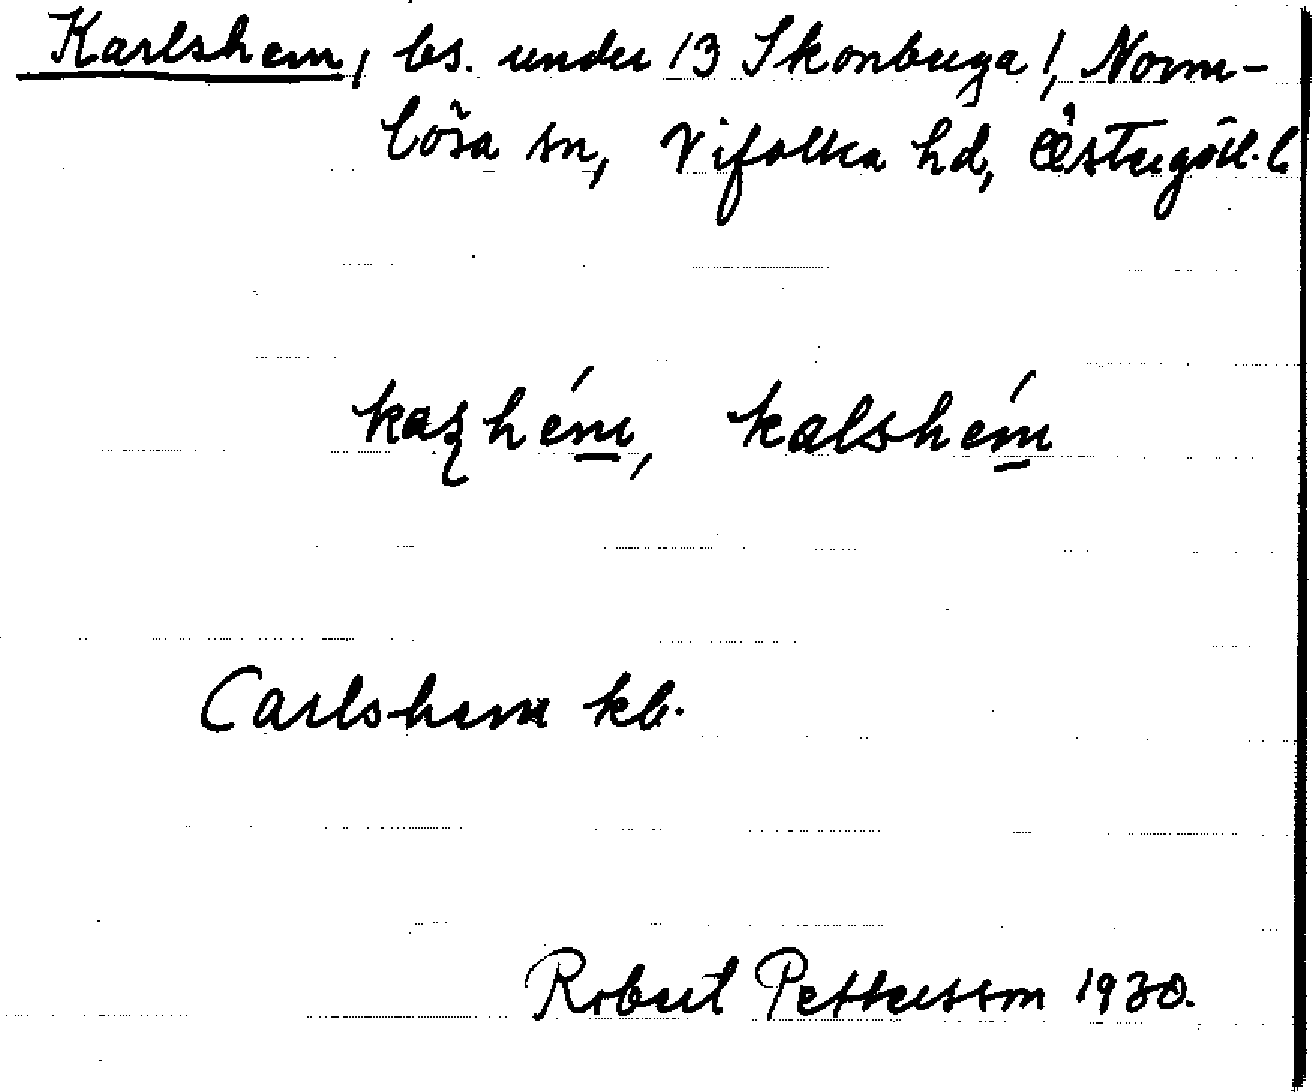 Karlshem, bs. under 13 Skonberga!, Norm-
lösa sn, Vifolka hd, Östergötl. l
kaʂhém, kalshém
Carlshem kb.
Robert Pettersson 1930.